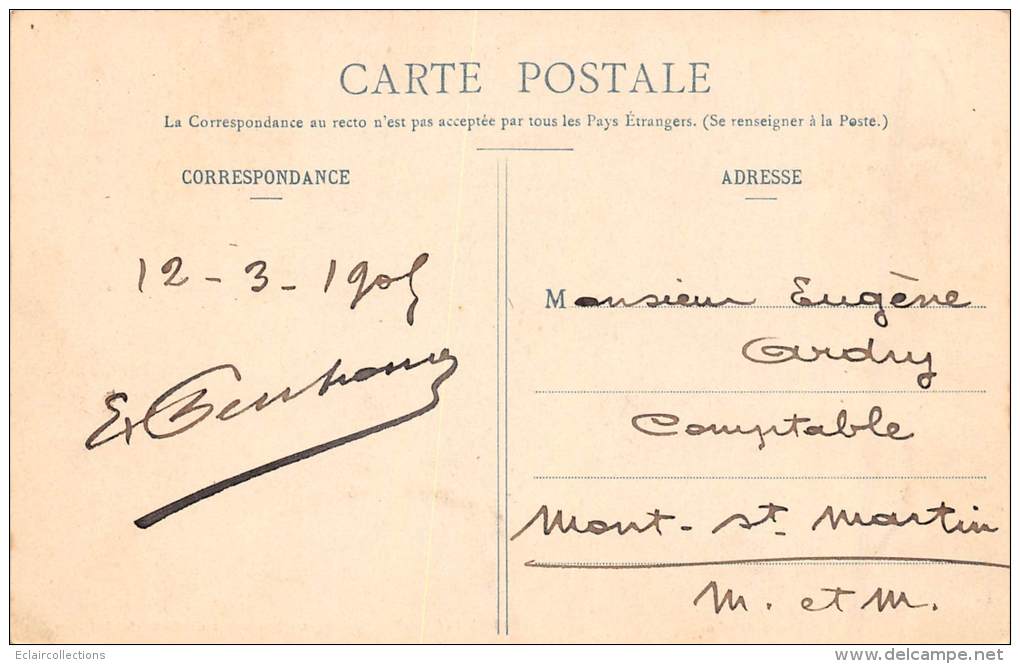 CARTE POSTALE
La Correspondance au recto n'est pas acceptée par tous les Pays Étrangers. (Se renseigner à la Poste.)
CORRESPONDANCE
12-3-1905
ADRESSE
Monsieur Eugène
Comptable
Mont-St Martin
M. et M.
Eclaircollections
www.delcampe.net